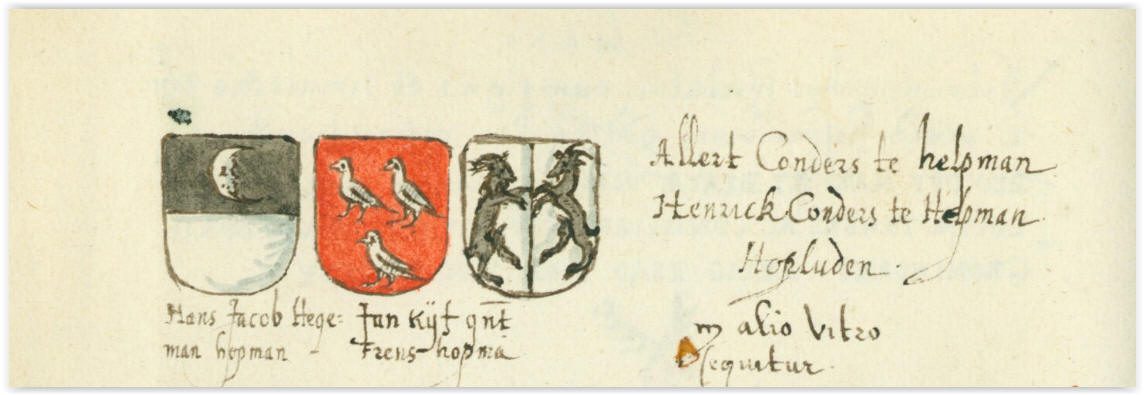 Hans Jacob Hege=
man hopman
Jan Kijf qnt
Frens hopma
Allert Conders te helpman
Henrick Conders te Helpman
Hopluden
in alio Vitro
sequitur.